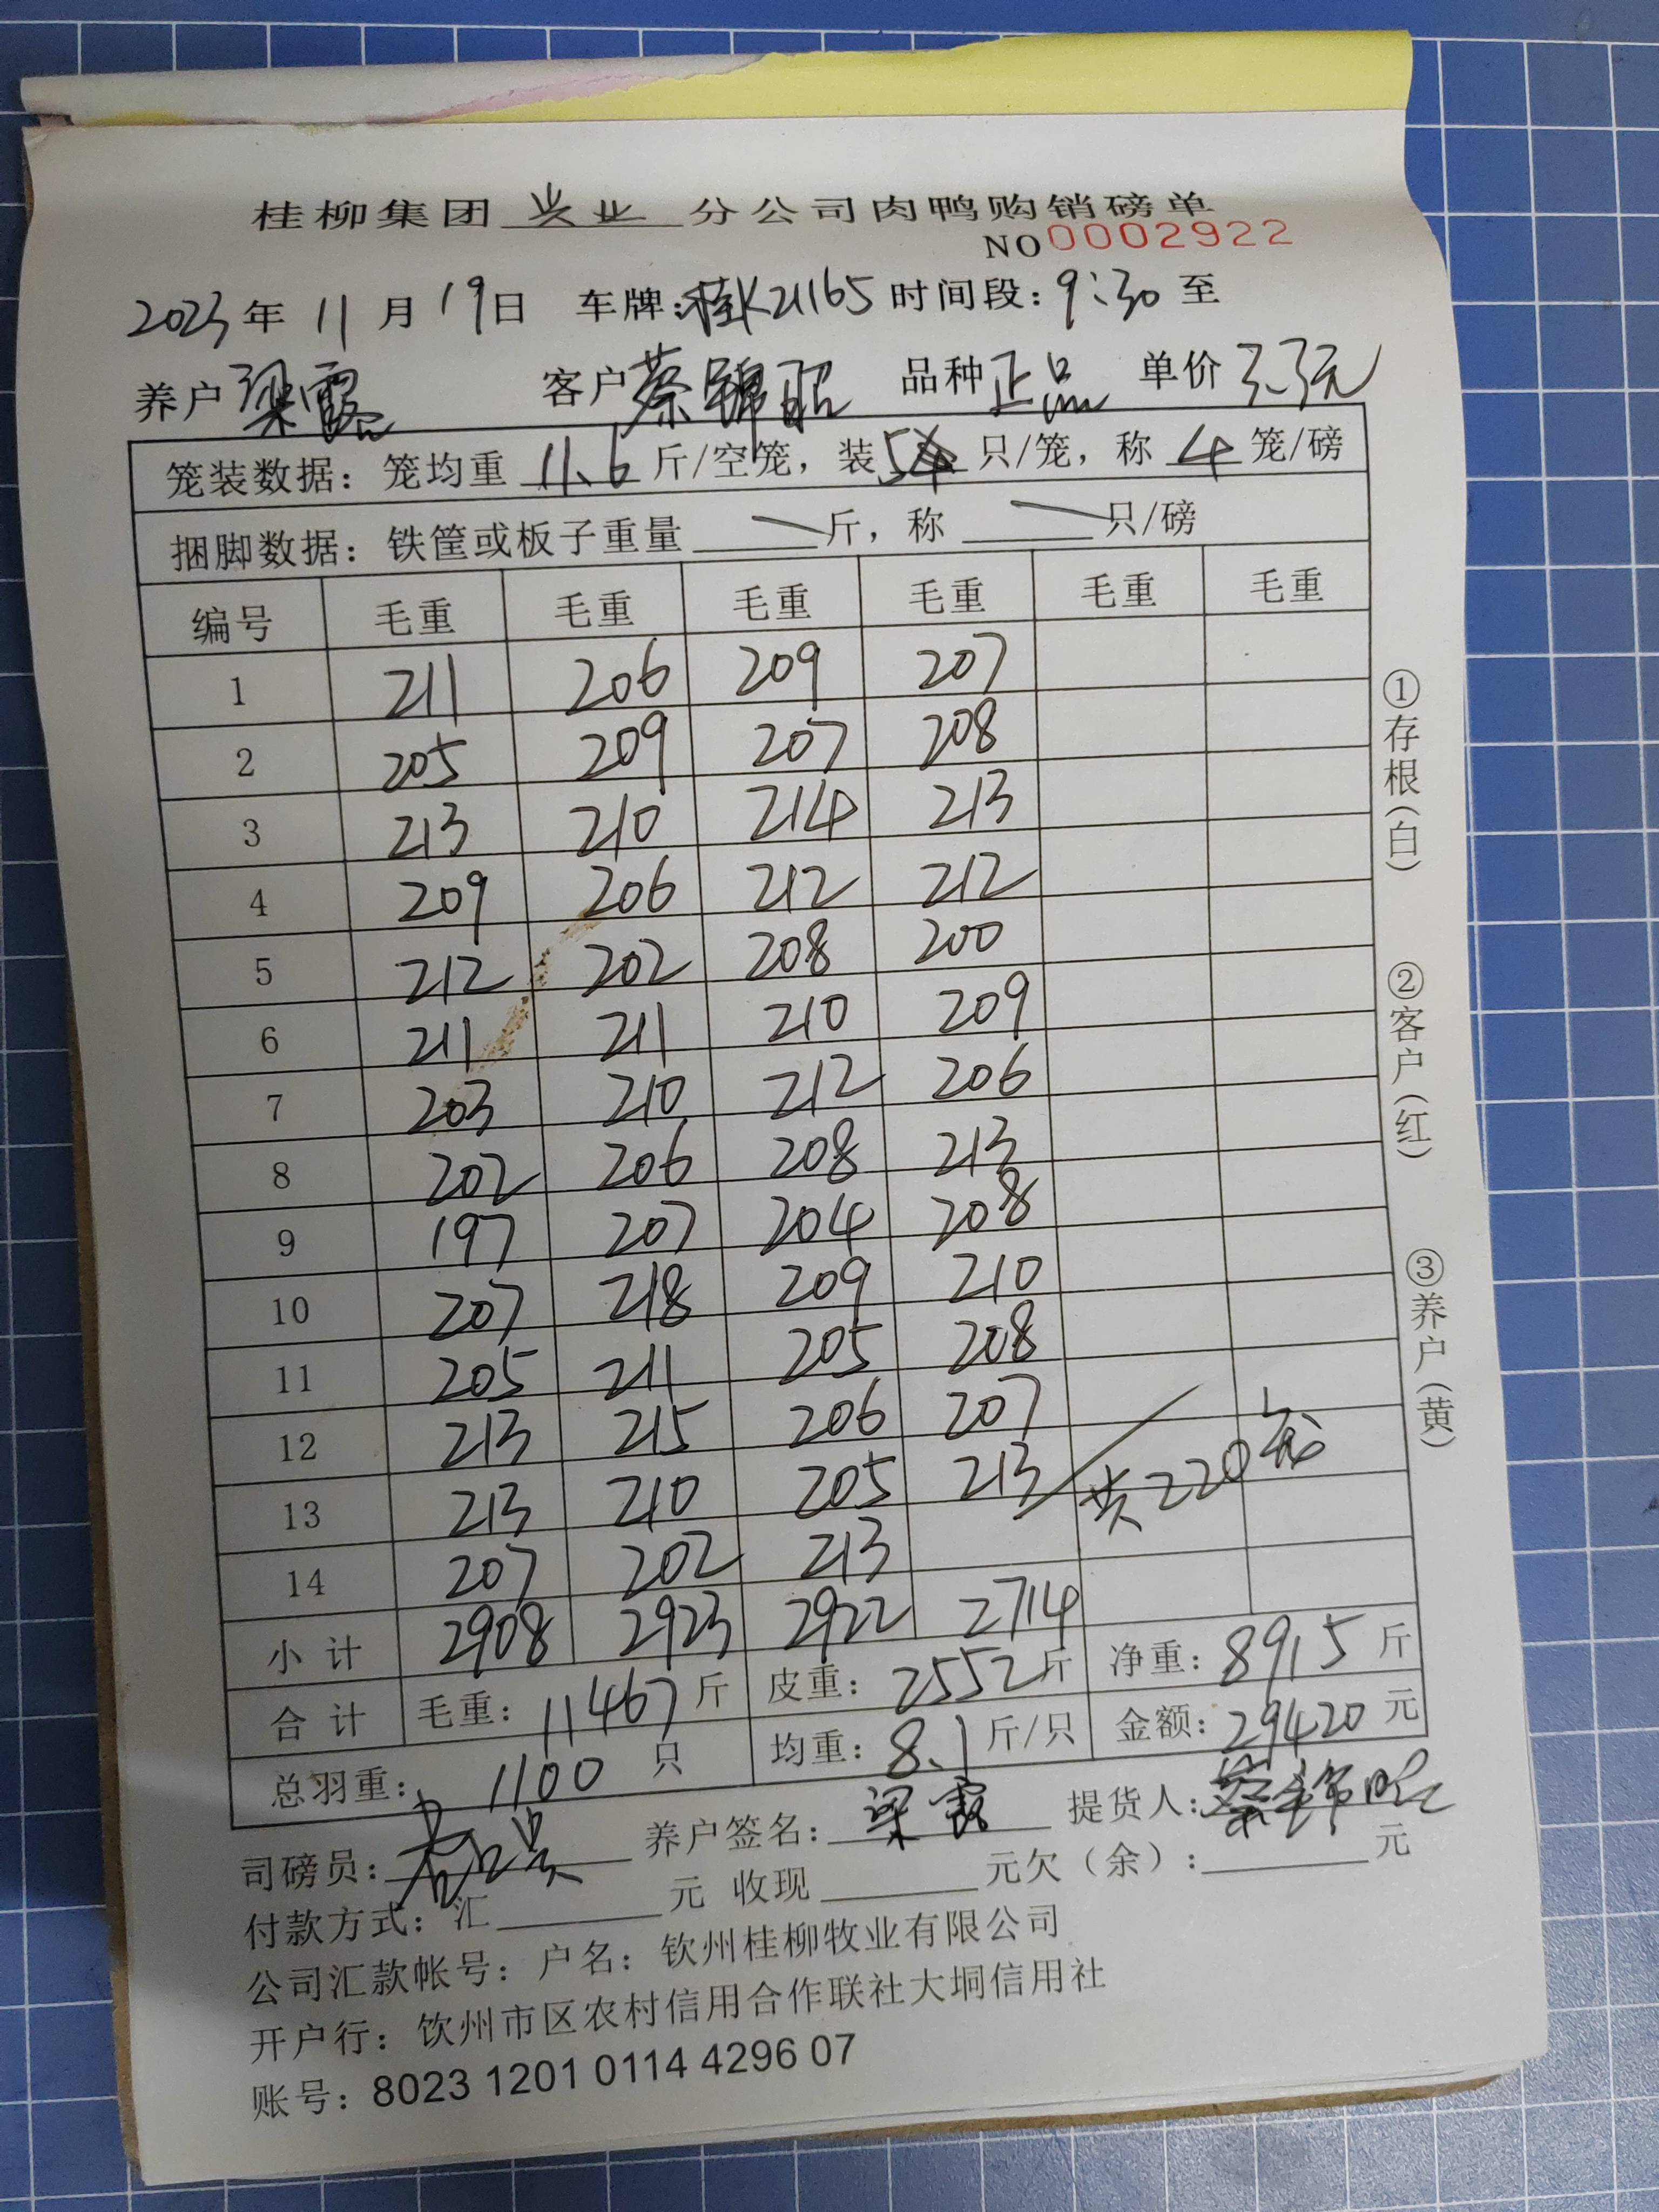 桂柳集团 兴业 分公司肉鸭购销磅单
NO 0002922
2023年 11 月 19日 车牌:桂K21165 时间段:9:30 至
养户 梁霞 客户 蔡锦昭 品种 正品 单价 3.3元
笼装数据:笼均重 11.6 斤/空笼,装 5 只/笼,称 4 笼/磅
捆脚数据:铁筐或板子重量 斤,称 只/磅
编号 毛重 毛重 毛重 毛重 毛重 毛重
1 211 206 209 207
2 205 209 207 208
3 213 210 214 213
4 209 206 212 212
5 212 202 208 200
6 211 211 210 209
7 203 210 212 206
8 202 206 208 213
9 197 207 204 208
10 207 218 209 210
11 205 211 205 208
12 213 215 206 207
13 213 210 205 213 共220笼
14 207 202 213
小计 2908 2923 2922 2714
合计 毛重:11467斤 皮重:2552斤 净重:8915斤
总羽重:1100 只 均重:8.1 斤/只 金额:29420 元
司磅员: 养户签名:梁霞 提货人:蔡锦昭
付款方式:汇 元 收现 元欠(余): 元
公司汇款帐号:户名:钦州桂柳牧业有限公司
开户行:钦州市区农村信用合作联社大垌信用社
账号:8023 1201 0114 4296 07
①存根(白) ②客户(红) ③养户(黄)